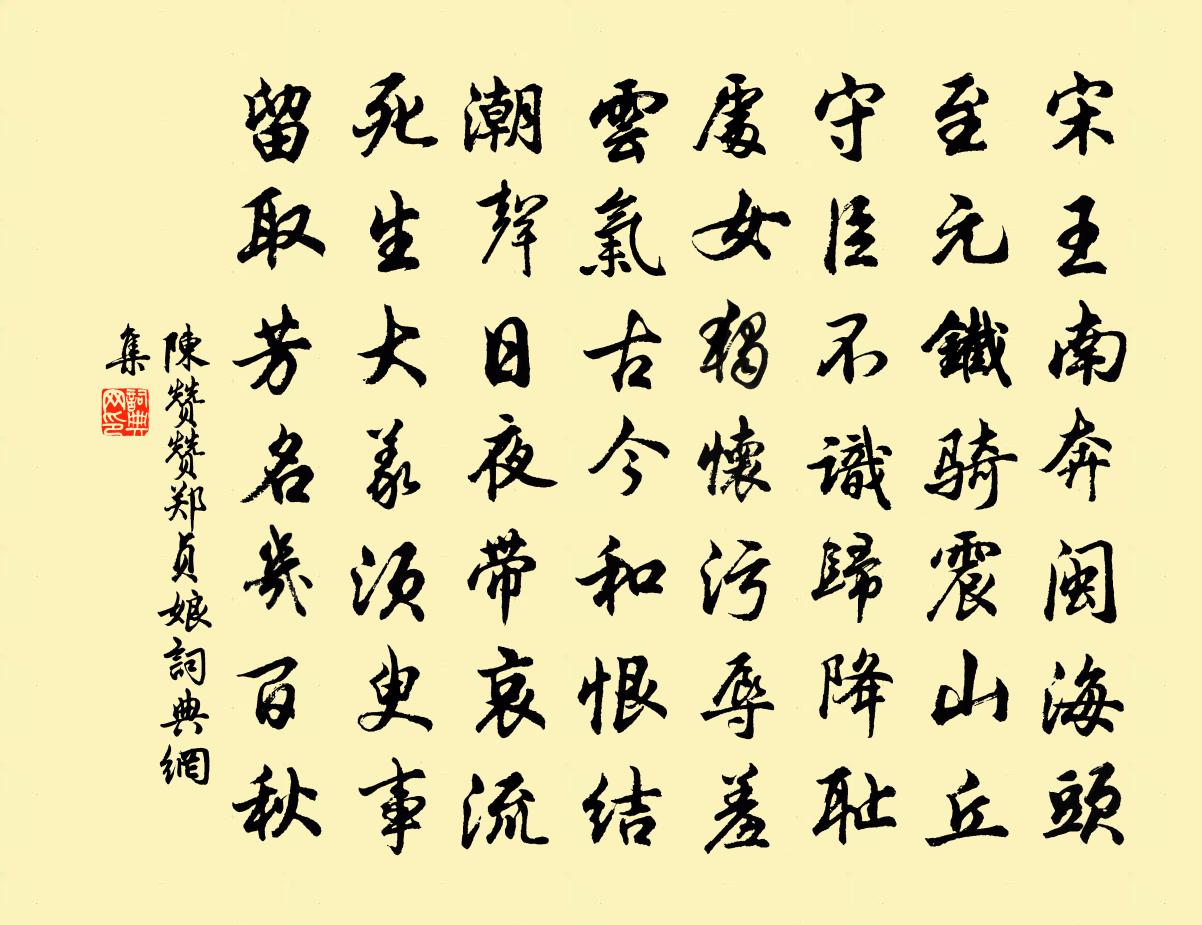 宋王南奔闽海頭
至元鐵騎震山丘
守臣不識歸降耻
處女獨懷污辱羞
雲氣古今和恨結
潮聲日夜帶哀流
死生大義須臾事
留取芳名幾百秋
陳赞赞郑貞娘詞典網
集
詞典
网印